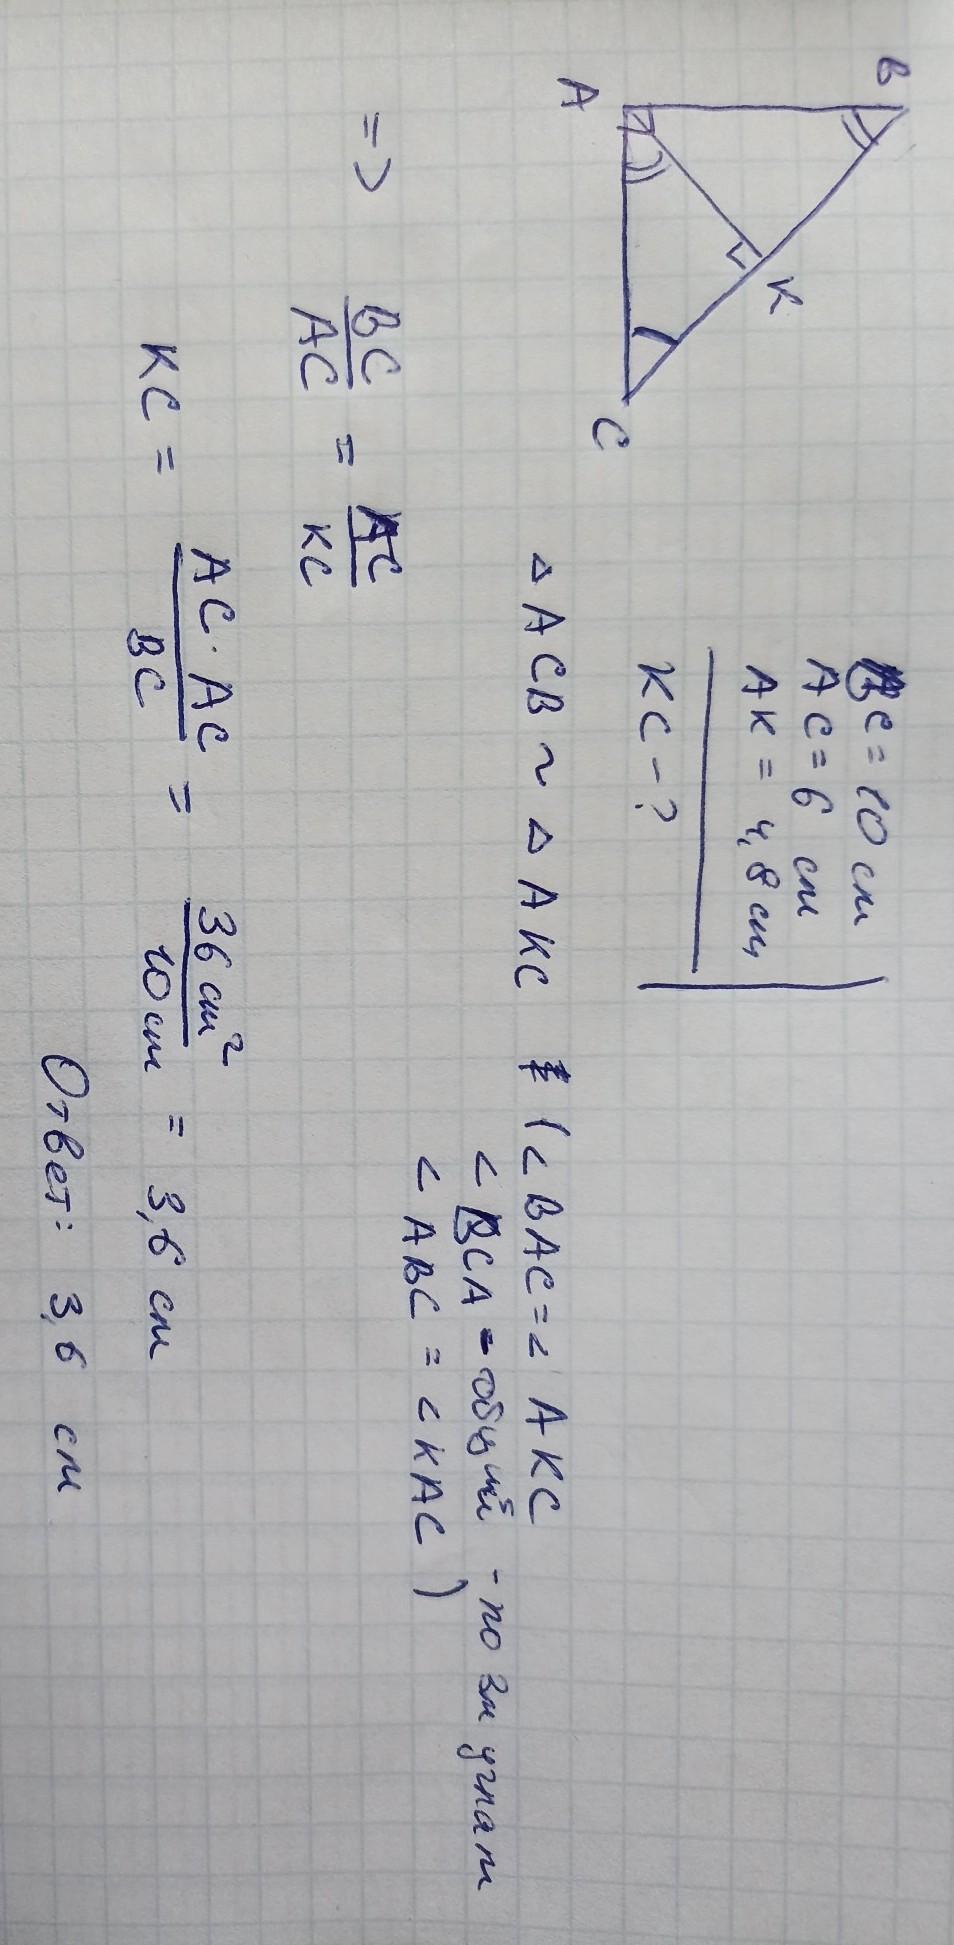 B
A
K
C
BC = 10 см
AC = 6 см
AK = 4,8 см
KC - ?
△ ACB ~ △ AKC (∠ BAC = ∠ AKC
∠ BCA - общий - по 3м углам
∠ ABC = ∠ KAC )
=> BC/AC = AC/KC
KC = AC · AC/BC = 36 см²/10 см = 3,6 см
Ответ: 3,6 см